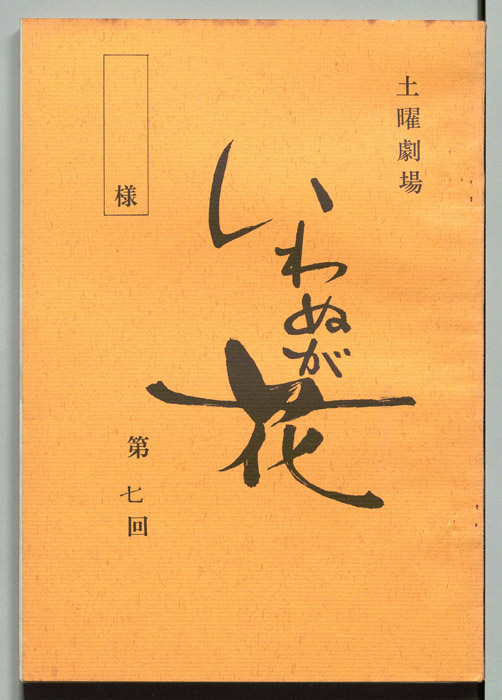 土曜劇場
いわぬが花
第七回
様